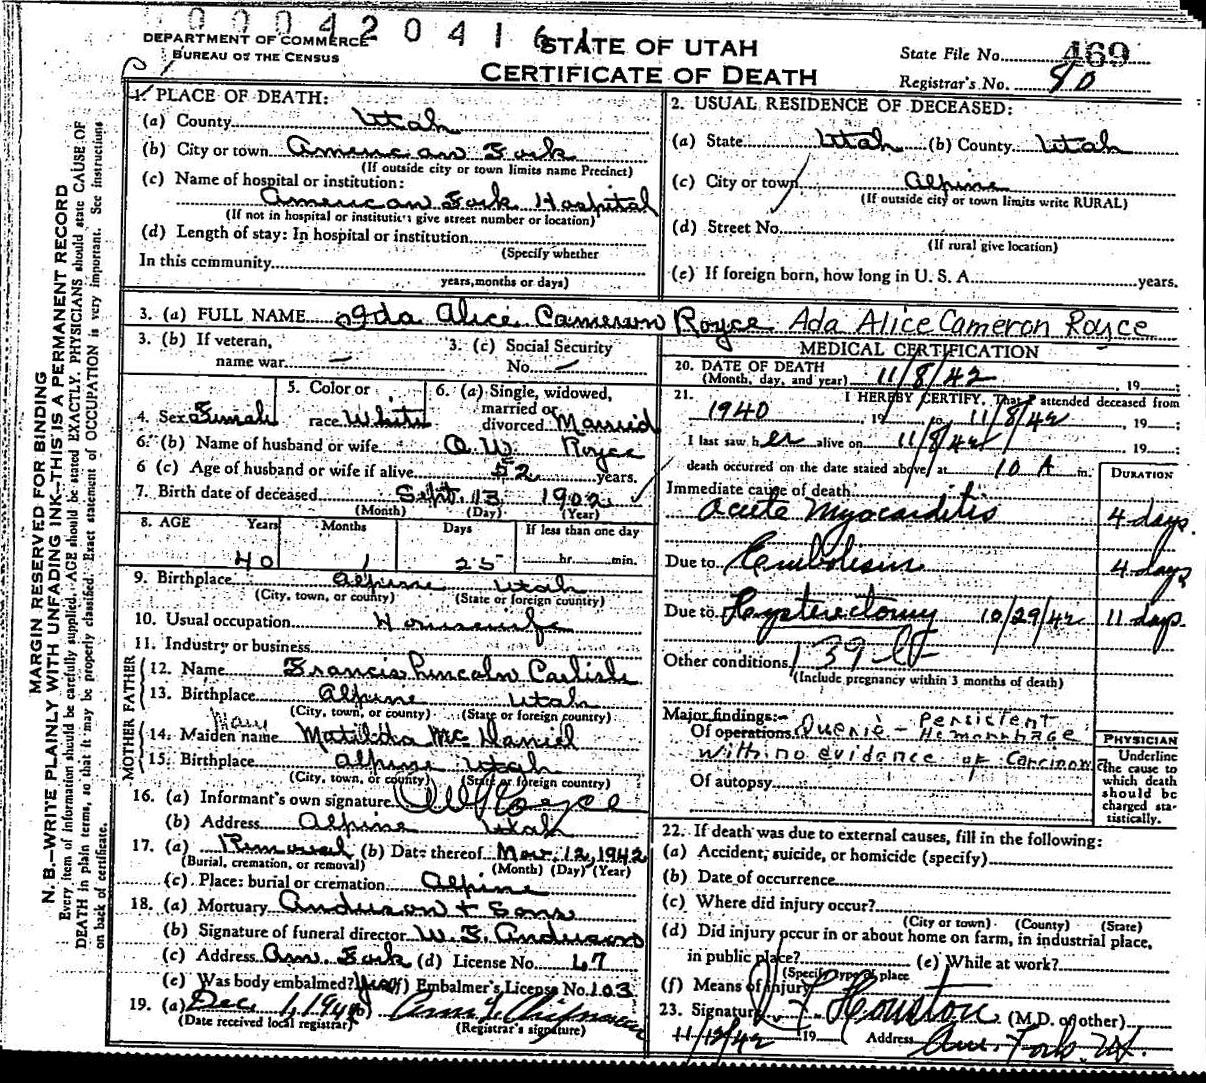 00042041 61
DEPARTMENT OF COMMERCE
BUREAU OF THE CENSUS
STATE OF UTAH
CERTIFICATE OF DEATH
State File No. 469
Registrar's No. 80
MARGIN RESERVED FOR BINDING
N. B.—WRITE PLAINLY WITH UNFADING INK—THIS IS A PERMANENT RECORD
Every item of information should be carefully supplied. AGE should be stated EXACTLY. PHYSICIANS should state CAUSE OF
DEATH in plain terms, so that it may be properly classified. Exact statement of OCCUPATION is very important. See instructions
on back of certificate.
1. PLACE OF DEATH:
(a) County Utah
(b) City or town American Fork
(If outside city or town limits name Precinct)
(c) Name of hospital or institution:
American Fork Hospital
(If not in hospital or institution give street number or location)
(d) Length of stay: In hospital or institution
(Specify whether
In this community
years, months or days)
2. USUAL RESIDENCE OF DECEASED:
(a) State Utah (b) County Utah
(c) City or town Alpine
(If outside city or town limits write RURAL)
(d) Street No.
(If rural give location)
(e) If foreign born, how long in U. S. A. years.
3. (a) FULL NAME Ida Alice Cameron Royce Ada Alice Cameron Royce
3. (b) If veteran,
name war —
3. (c) Social Security
No. —
4. Sex Female
5. Color or
race White
6. (a) Single, widowed,
married or
divorced Married
6. (b) Name of husband or wife O. W. Royce
6 (c) Age of husband or wife if alive 52 years.
7. Birth date of deceased Sept. 13 1902
(Month) (Day) (Year)
8. AGE Years Months Days If less than one day
40 1 25 hr. min.
9. Birthplace Alpine Utah
(City, town, or county) (State or foreign country)
10. Usual occupation Housewife
11. Industry or business
FATHER
12. Name Francis Lincoln Carlisle
13. Birthplace Alpine Utah
(City, town, or county) (State or foreign country)
MOTHER
Mary
14. Maiden name Matilda McDaniel
15. Birthplace Alpine Utah
(City, town, or county) (State or foreign country)
16. (a) Informant's own signature OW Royce
(b) Address Alpine Utah
17. (a) Removal (b) Date thereof Nov. 12, 1942
(Burial, cremation, or removal) (Month) (Day) (Year)
(c) Place: burial or cremation Alpine
18. (a) Mortuary Anderson + Sons
(b) Signature of funeral director W. E. Anderson
(c) Address Am. Fork (d) License No. 67
(e) Was body embalmed? Yes (f) Embalmer's License No. 103
19. (a) Dec 1, 1942 (b)
(Date received local registrar) (Registrar's signature)
MEDICAL CERTIFICATION
20. DATE OF DEATH
(Month, day, and year) 11/8/42, 19 ;
21. I HEREBY CERTIFY, That I attended deceased from
1940, 19 to 11/8/42, 19 ;
I last saw her alive on 11/8/42, 19 ;
death occurred on the date stated above, at 10 A m.
DURATION
Immediate cause of death
Acute Myocarditis 4 days.
Due to Embolism 4 days
Due to Hysterectomy 10/29/42 11 days.
Other conditions 139
(Include pregnancy within 3 months of death)
Major findings:—
Of operations Querie - Persistent Hemorrhage
with no evidence of Carcinoma
Of autopsy
PHYSICIAN
Underline
the cause to
which death
should be
charged sta-
tistically.
22. If death was due to external causes, fill in the following:
(a) Accident, suicide, or homicide (specify)
(b) Date of occurrence
(c) Where did injury occur?
(City or town) (County) (State)
(d) Did injury occur in or about home on farm, in industrial place,
in public place? (e) While at work?
(Specify type of place
(f) Means of injury
23. Signature Houston (M.D. or other)
11/12/42 19 Address Am. Fork. Ut.